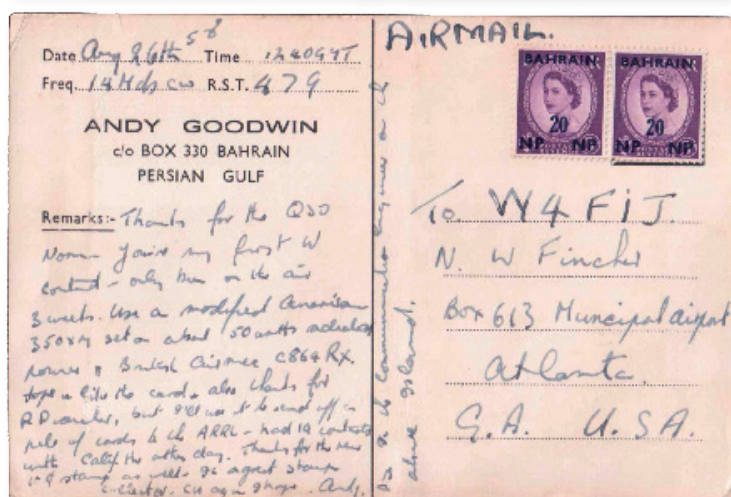 Date Aug 26th 58 Time 1240GMT
Freq. 14 Mcs cw R.S.T. 479
ANDY GOODWIN
c/o BOX 330 BAHRAIN
PERSIAN GULF
Remarks:- Thanks for the QSO
Norm - You're my first W
contact - only been on the air
3 weeks. Use a modified American
set on about 50 watts
power & British CR
Hope u like the card, also thanks for
but
of cards to the ARRL - had 12 contacts
with Calif the other day. Thanks for the new
stamp as well. I'm a great stamp
collector. CU again I hope. Andy.
P.S. I'm the Communication Engineer on the
above island.
AIRMAIL.
BAHRAIN BAHRAIN
20 20
NP NP NP NP
To W4FIJ.
N. W Fincher
Box 613 Muncipal airport
Atlanta.
G.A. U.S.A.